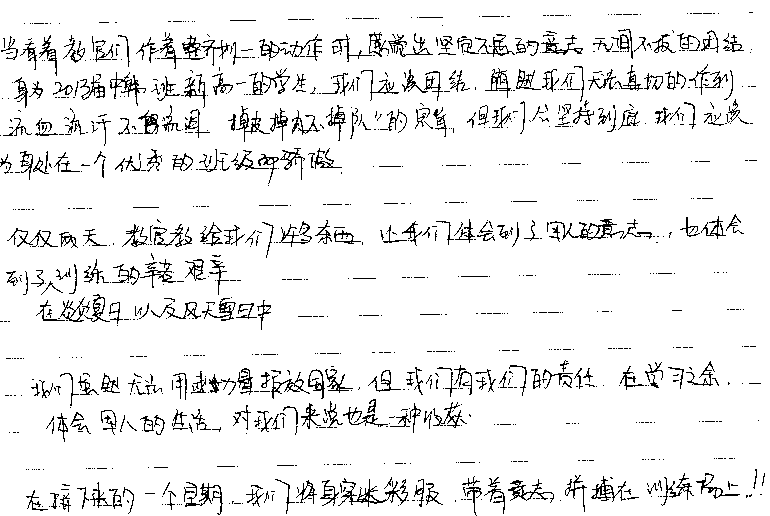 当看着教官们作着整齐划一的动作时,感觉出坚定不屈的意志 无坚不拔的团结
身为2013届 班新高一的学生,我们应该团结 虽然我们无法真切的作到
流血流汗不再流泪 掉皮掉肉不掉队"的 ,但我们会坚持到底 我们应该
为身处在一个优秀的班级而骄傲
仅仅两天 教官教给我们许多东西,让我们体会到了军人的意志,也体会
到了训练的辛苦 艰辛
在炎炎夏日以及风天雪日中
我们虽然无法用 力量报效国家,但我们有我们的责任 在学习之余,
体会军人的生活,对我们来说也是一种收获.
在接下来的一个星期 我们将身穿迷彩服 带着意志,拼搏在训练场上!!